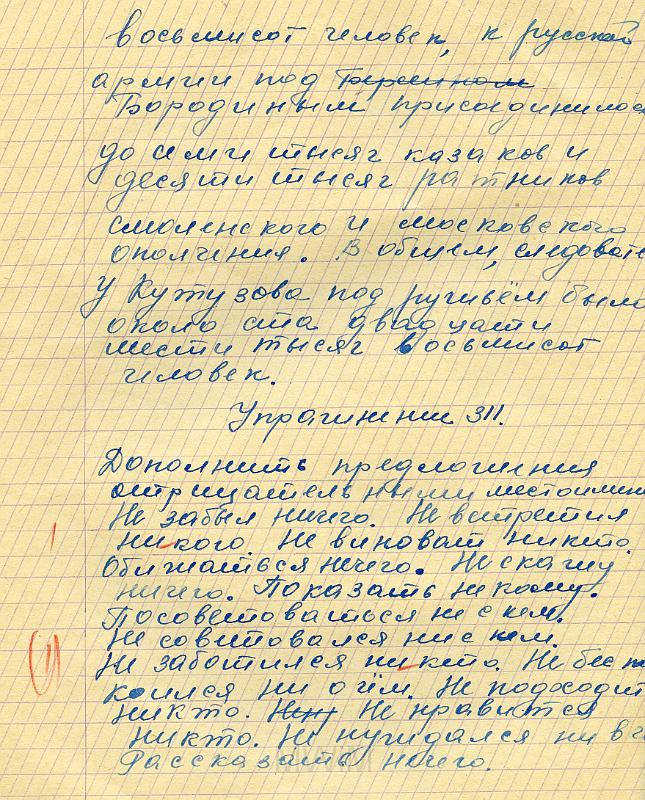 восьмисот человек, к русской
армии под
Бородиным присоединилось
до семи тысяч казаков и
десяти тысяч ратников
смоленского и московского
ополчения. В общем, следовате
У Кутузова под ружьём было
около ста двадцати
шести тысяч восьмисот
человек.
Упражнение 311.
Дополнить предложения
отрицательными местоимени
Не забыл ничего. Не встретил
никого. Не виноват никто.
Обижаться нечего. Не скажу
ничего. Показать некому.
Посоветоваться не с кем.
Не советовался ни с кем.
Не заботился никто. Не бес по
коился ни о чём. Не подходит
никто. Не нравится
никто. Не нуждался ни в ч
Рассказать нечего.